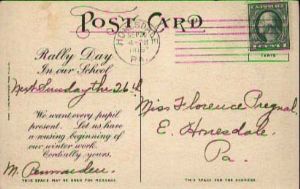 POST CARD
HONESDALE
PA.
Rally Day
In our School
Next Sunday the 26th
We want every pupil
present. Let us have
a rousing beginning of
our winter work.
Cordially yours,
M.
Miss Florence
E. Honesdale,
Pa.
THIS SPACE MAY BE USED FOR MESSAGE
THIS SPACE FOR ADDRESS ONLY